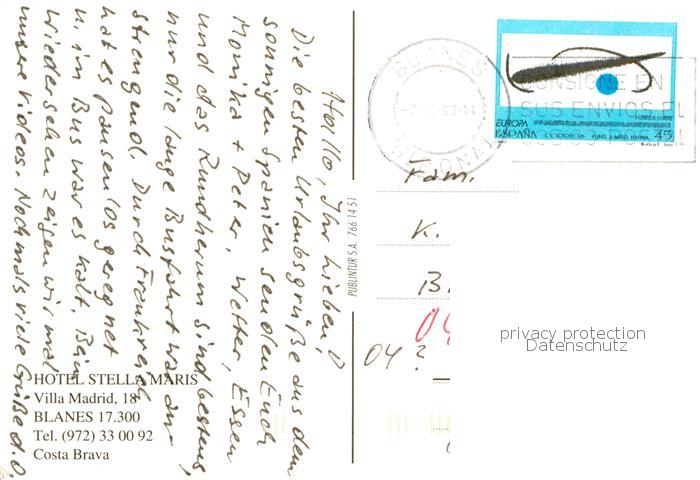 Hallo, Ihr Lieben!
Die besten Urlaubsgrüße aus dem
sonnigen Spanien senden Euch
Monika + Peter. Wetter, Essen
und das Rundherum sind bestens,
nur die lange Busfahrt war an-
strengend. Durch Frankreich
hat es pausenlos geregnet
u. im Bus war es kalt. Beim
Wiedersehen zeigen wir mal
unsere Videos. Nochmals viele Grüße d.O.
HOTEL STELLA MARIS
Villa Madrid, 18
BLANES 17.300
Tel. (972) 33 00 92
Costa Brava
PUBLINTUR S.A. 766 14 51
BLANES
(GERONA)
CONSIGNE EN
SUS ENVIOS EL
CODIGO POSTAL
EUROPA
ESPAÑA
45
Fam.
K.
B.
04
04?
privacy protection
Datenschutz